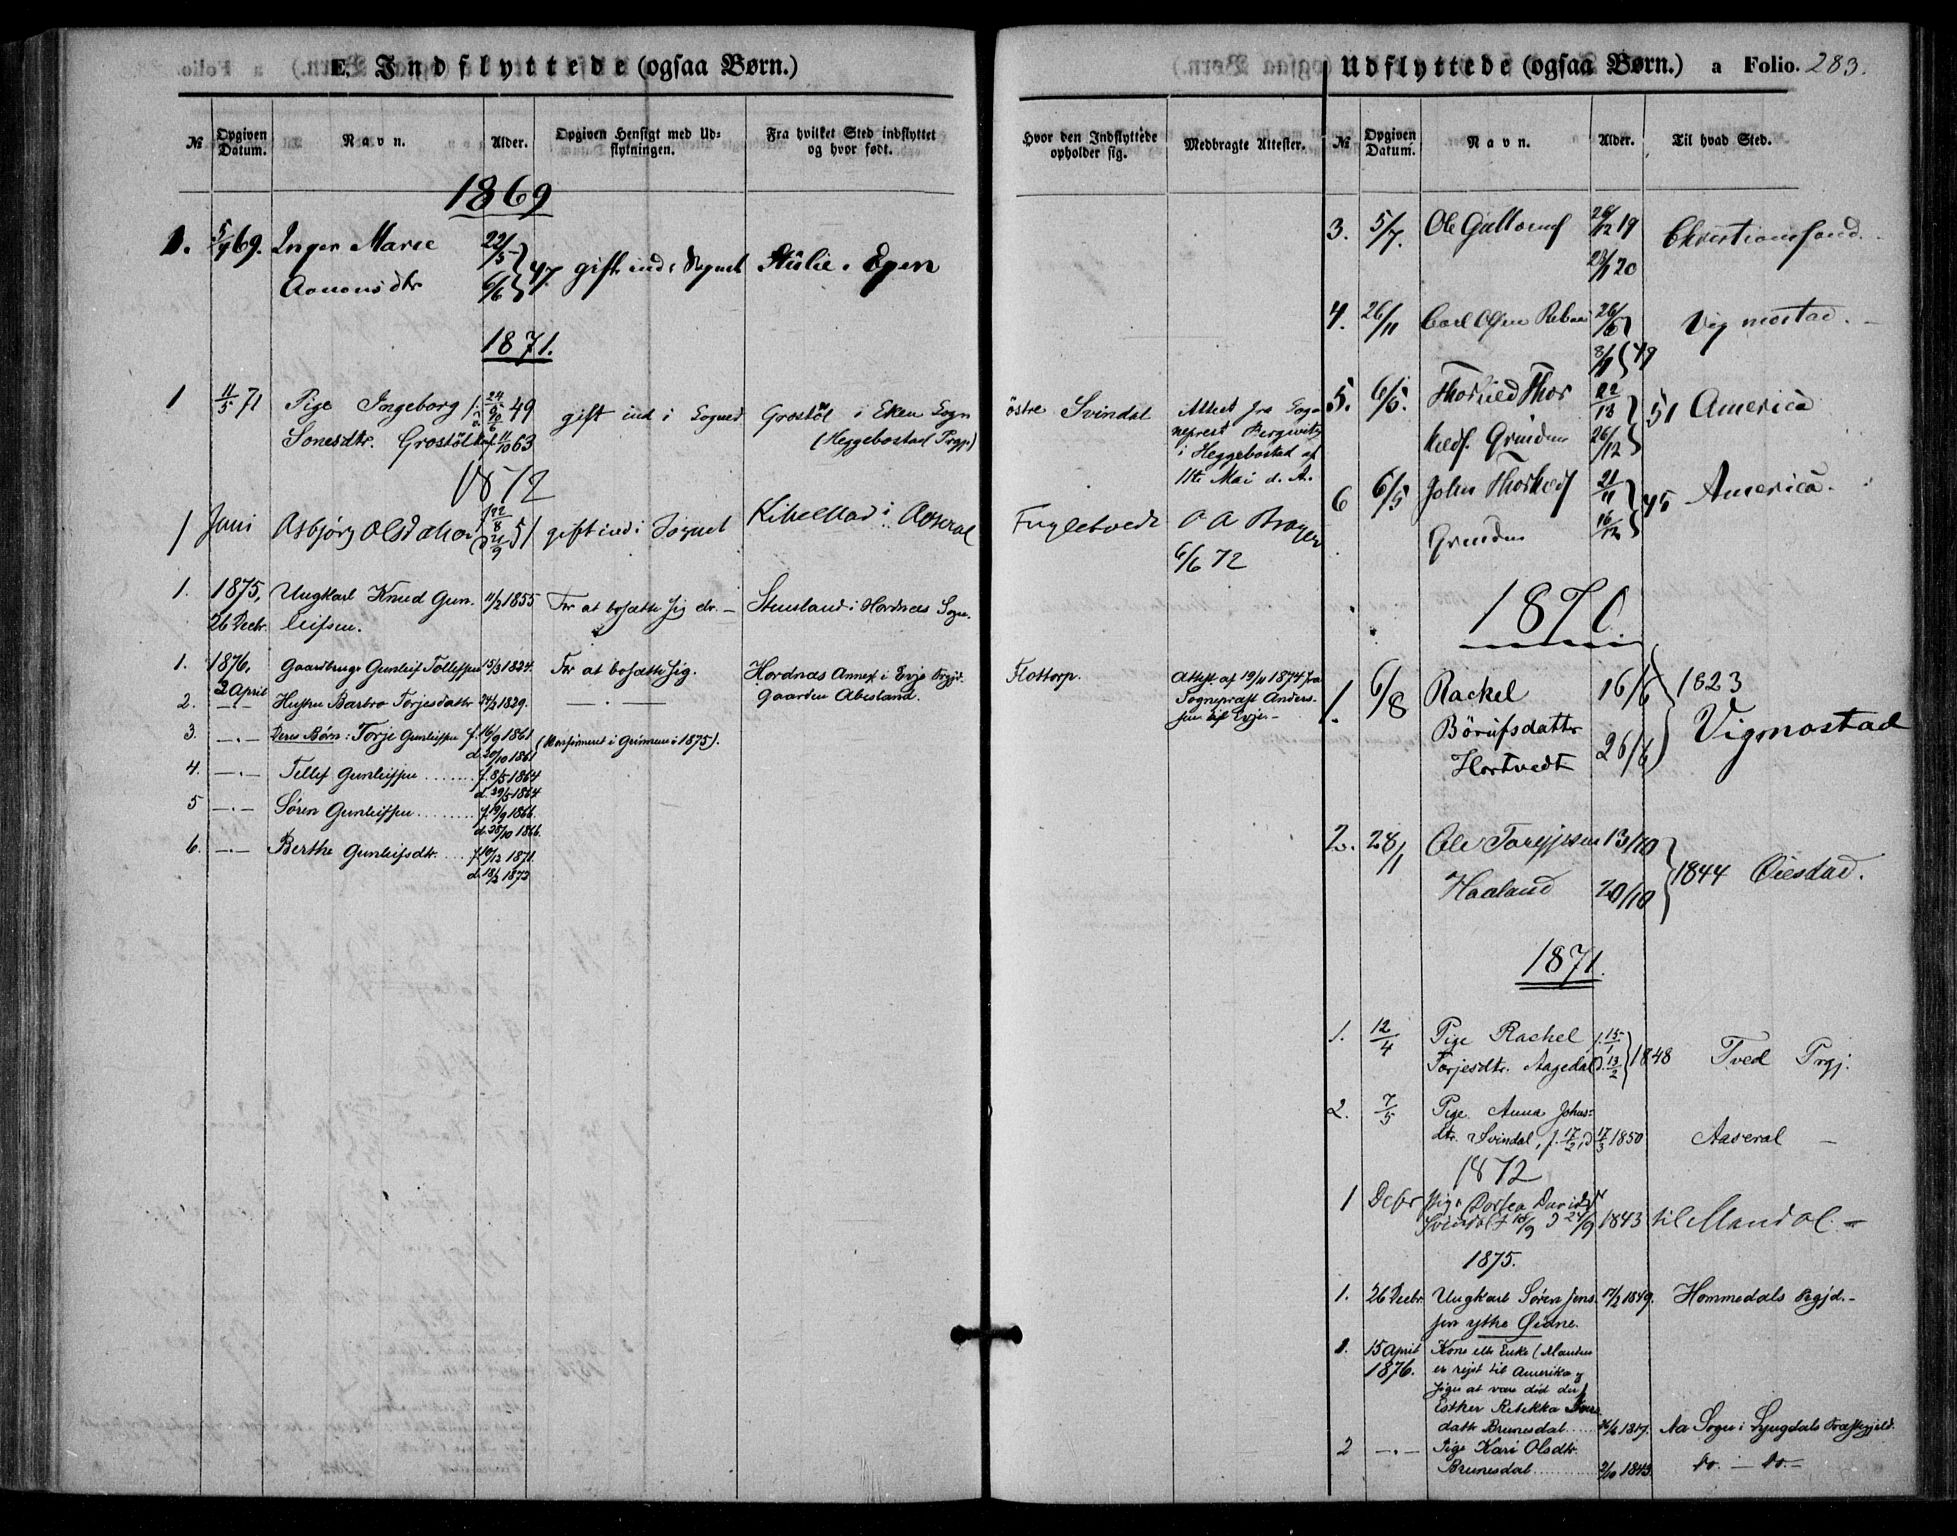 E. Indflyttede (ogsaa Børn.)
№ Opgiven Datum. Navn. Alder. Opgiven Hensigt med Udflytningen. Fra hvilket Sted indflyttet og hvor født.
1869
1. 5/4 69. Inger Marie 22/5 gift ind i Sognet Eken
Aanonsdtr 6/6 } 47
1871.
1 11/5 71 Pige Ingeborg f. 24/5 49 gift ind i Sognet Grostøl i Eken Sogn
Sonesdtr. Grostøl 63 (Heggebostad Prgj.)
1872
1 Juni Asbjørg Olsdatter 51 gift ind i Sognet i Aaseral
1. 1875, Ungkarl Knud Gun- 11/2 1855 For at bosætte sig dr. — Stensland i Hordnæs Sogn.
26 Decbr. leifsen.
1. 1876, Gaardbruger Gunleif Tollefsen 15/3 1824. For at bosætte sig. Hordnæs Annex i Evje Prgjd.
2 April Gaarden Abesland.
2. —"— Hustru Barbro Torjesdatter 24/2 1829. — . —
3. —.— Deres Børn: Torje Gunleifsen f. 16/9 1861 (Konfirmeret i Grimene i 1875).
d. 20/10 1861
4. —.— Tellef Gunleifsen ........ f. 8/5 1864
d. 29/5 1864
5 —.— Søren Gunleifsen ......... f. 19/9 1866.
d. 28/10 1866.
6. —.— Berthe Gunleifsdtr. .... f. 10/12 1871.
d. 18/2 1872
Udflyttede (ogsaa Børn.) a Folio. 283.
Hvor den Indflyttede opholder sig. Medbragte Attester. № Opgiven Datum. Navn. Alder. Til hvad Sted.
østre Svindal Attest fra Sog-
neprest Bergwitz
i Heggebostad af
11te Mai d. A.
Fuglestvedt O A
6/6 72
Flottorp. Attest af 19/11 1874 fra
Sognepræst Anders-
sen til Evje. —
3. 5/7. Ole 26/12 19 Christianssand.
23/1 20
4. 26/11 Carl Olsen 26/5 Vigmostad. —
} 49
5. 6/5. Thor 51 America
Grinden 26/12
6 6/5 John 21/11 } 45 America.
Grinden 16/12
1870.
1. 6/8 Rachel 16/6 } 1823
Børufsdatter Vigmostad
Hortvedt 26/6
2. 28/1 Ole Torgjusen 13/10 } 1844 Øiestad.
Haaland 20/10
1871.
1. 12/4 Pige Rachel f. 15/1 } 1848 Tved Prgj.
Torjesdtr. Aagedal d. 13/2
2. 7/5 Pige Anna Johns-
dtr. Svindal, f. 17/2, d 17/3 1850 Aaseral —
1872
1 Debr Pige Dortea Davidsd
Svindal f 18/9 d 24/9 1843 til Mandal. —
1875.
1. 26 Decbr. Ungkarl Søren Jens- 17/2 1849. Hommedals Prgjd. —
sen ytre Øidne.
1. 15 April Kone eller Enke (Manden
1876. er rejst til Amerika og
siges at være død der)
Esther Rebekka
datter Brunesdal .... 26/6 1817. Aa Sogn i Lyngdals Præstegjeld.
2 —.— Pige Kari Olsdtr.
Brunesdal .......... 2/10 1843. Do. — Do. —